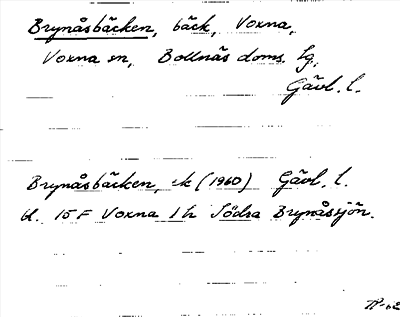 Brynåsbäcken, bäck, Voxna,
Voxna sn, Bollnäs doms. lg,
Gävl. l.
Brynåsbäcken, ek (1960) Gävl. l.
bl. 15F Voxna 1h Södra Brynåssjön.